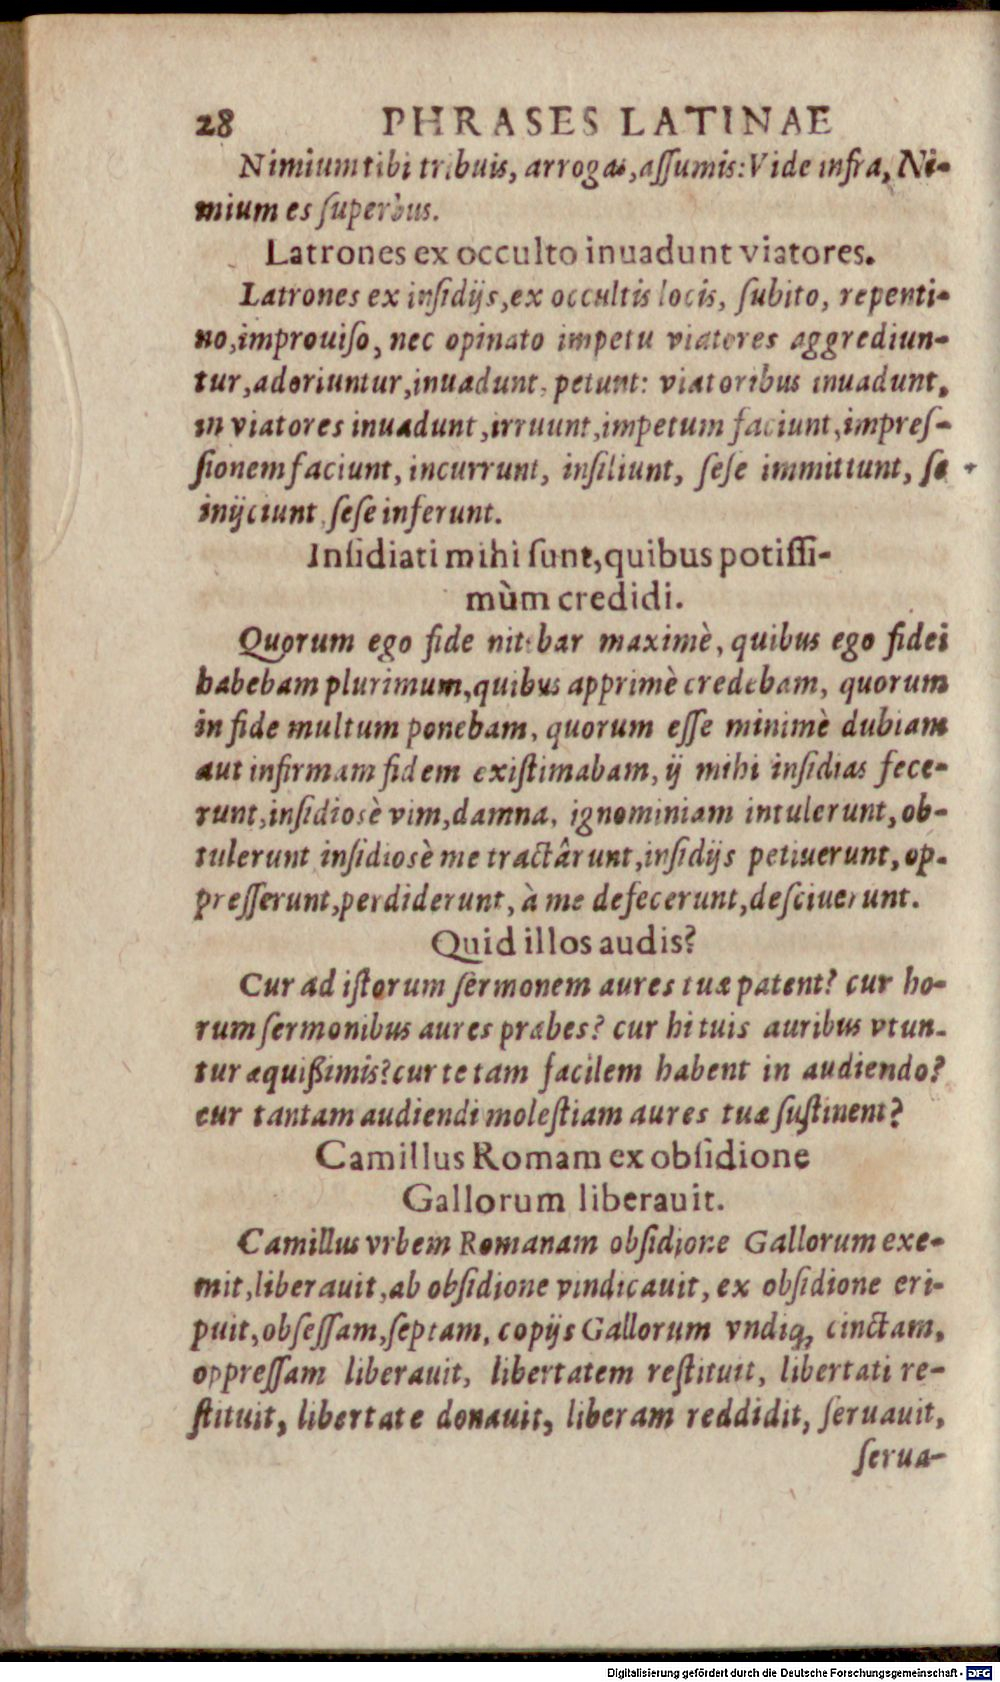 28 PHRASES LATINAE
Nimium tibi tribuis, arrogas, aſſumis: Vide infra, Ni-
mium es ſuperbus.
Latrones ex occulto inuadunt viatores.
Latrones ex inſidijs, ex occultis locis, ſubito, repenti-
no, improuiſo, nec opinato impetu viatores aggrediun-
tur, adoriuntur, inuadunt, petunt: viatoribus inuadunt,
in viatores inuadunt, irruunt, impetum faciunt, impreſ-
ſionem faciunt, incurrunt, inſiliunt, ſeſe immittunt, ſe
inijciunt, ſeſe inferunt.
Inſidiati mihi ſunt, quibus potiſſi-
mùm credidi.
Quorum ego fide nitebar maximè, quibus ego fidei
habebam plurimum, quibus apprimè credebam, quorum
in fide multum ponebam, quorum eſſe minimè dubiam
aut infirmam fidem exiſtimabam, ij mihi inſidias fece-
runt, inſidiosè vim, damna, ignominiam intulerunt, ob-
tulerunt inſidiosè me tractârunt, inſidijs petiuerunt, op-
preſſerunt, perdiderunt, à me defecerunt, deſciuerunt.
Quid illos audis?
Cur ad iſtorum ſermonem aures tuæ patent? cur ho-
rum ſermonibus aures præbes? cur hi tuis auribus vtun-
tur æquißimis? cur te tam facilem habent in audiendo?
cur tantam audiendi moleſtiam aures tuæ ſuſtinent?
Camillus Romam ex obſidione
Gallorum liberauit.
Camillus vrbem Romanam obſidione Gallorum exe-
mit, liberauit, ab obſidione vindicauit, ex obſidione eri-
puit, obſeſſam, ſeptam, copijs Gallorum vndiq́; cinctam,
oppreſſam liberauit, libertatem reſtituit, libertati re-
ſtituit, libertate donauit, liberam reddidit, ſeruauit,
ſerua-
Digitalisierung gefördert durch die Deutsche Forschungsgemeinschaft - DFG